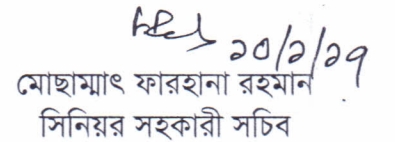 ২০/২/১৭
মোছাম্মাৎ ফারহানা রহমান
সিনিয়র সহকারী সচিব